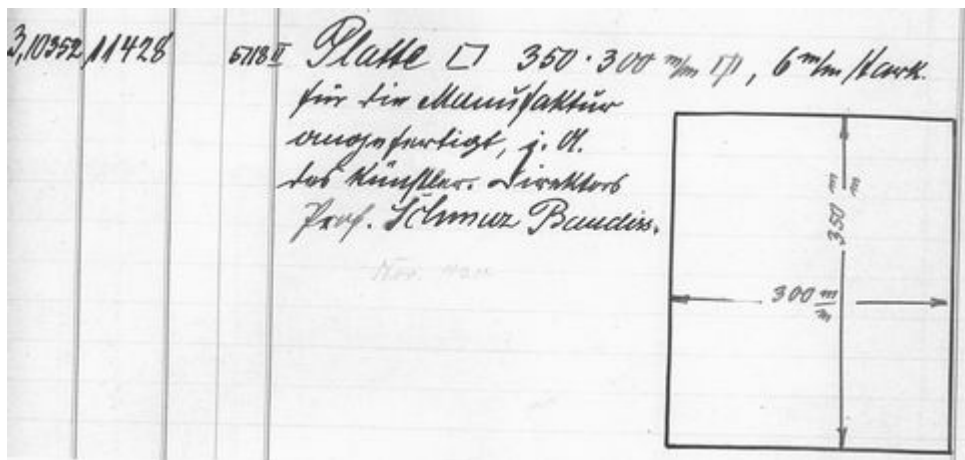 3,10352 11428 5118 II Platte □ 350 · 300 m/m, 6 m/m stark.
für die Manufaktur
angefertigt, i. A.
des Künstler. Direktors
Prof. Schmuz Baudiss.
Nov.
350 m/m
300 m/m